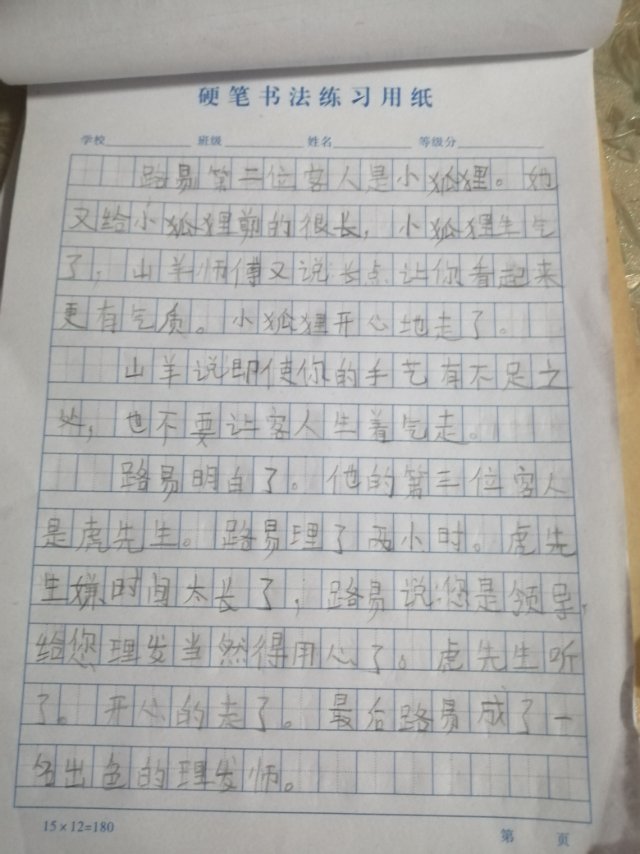 硬笔书法练习用纸
学校 班级 姓名 等级分
路易第二位客人是小狐狸。他
又给小狐狸剪的很长，小狐狸生气
了，山羊师傅又说长点让你看起来
更有气质。小狐狸开心地走了。
山羊说即使你的手艺有不足之
处，也不要让客人生着气走。
路易明白了。他的第三位客人
是虎先生。路易理了两小时。虎先
生嫌时间太长了，路易说您是领导，
给您理发当然得用心了。虎先生听
了。开心的走了。最后路易成了一
名出色的理发师。
15×12=180
第 页